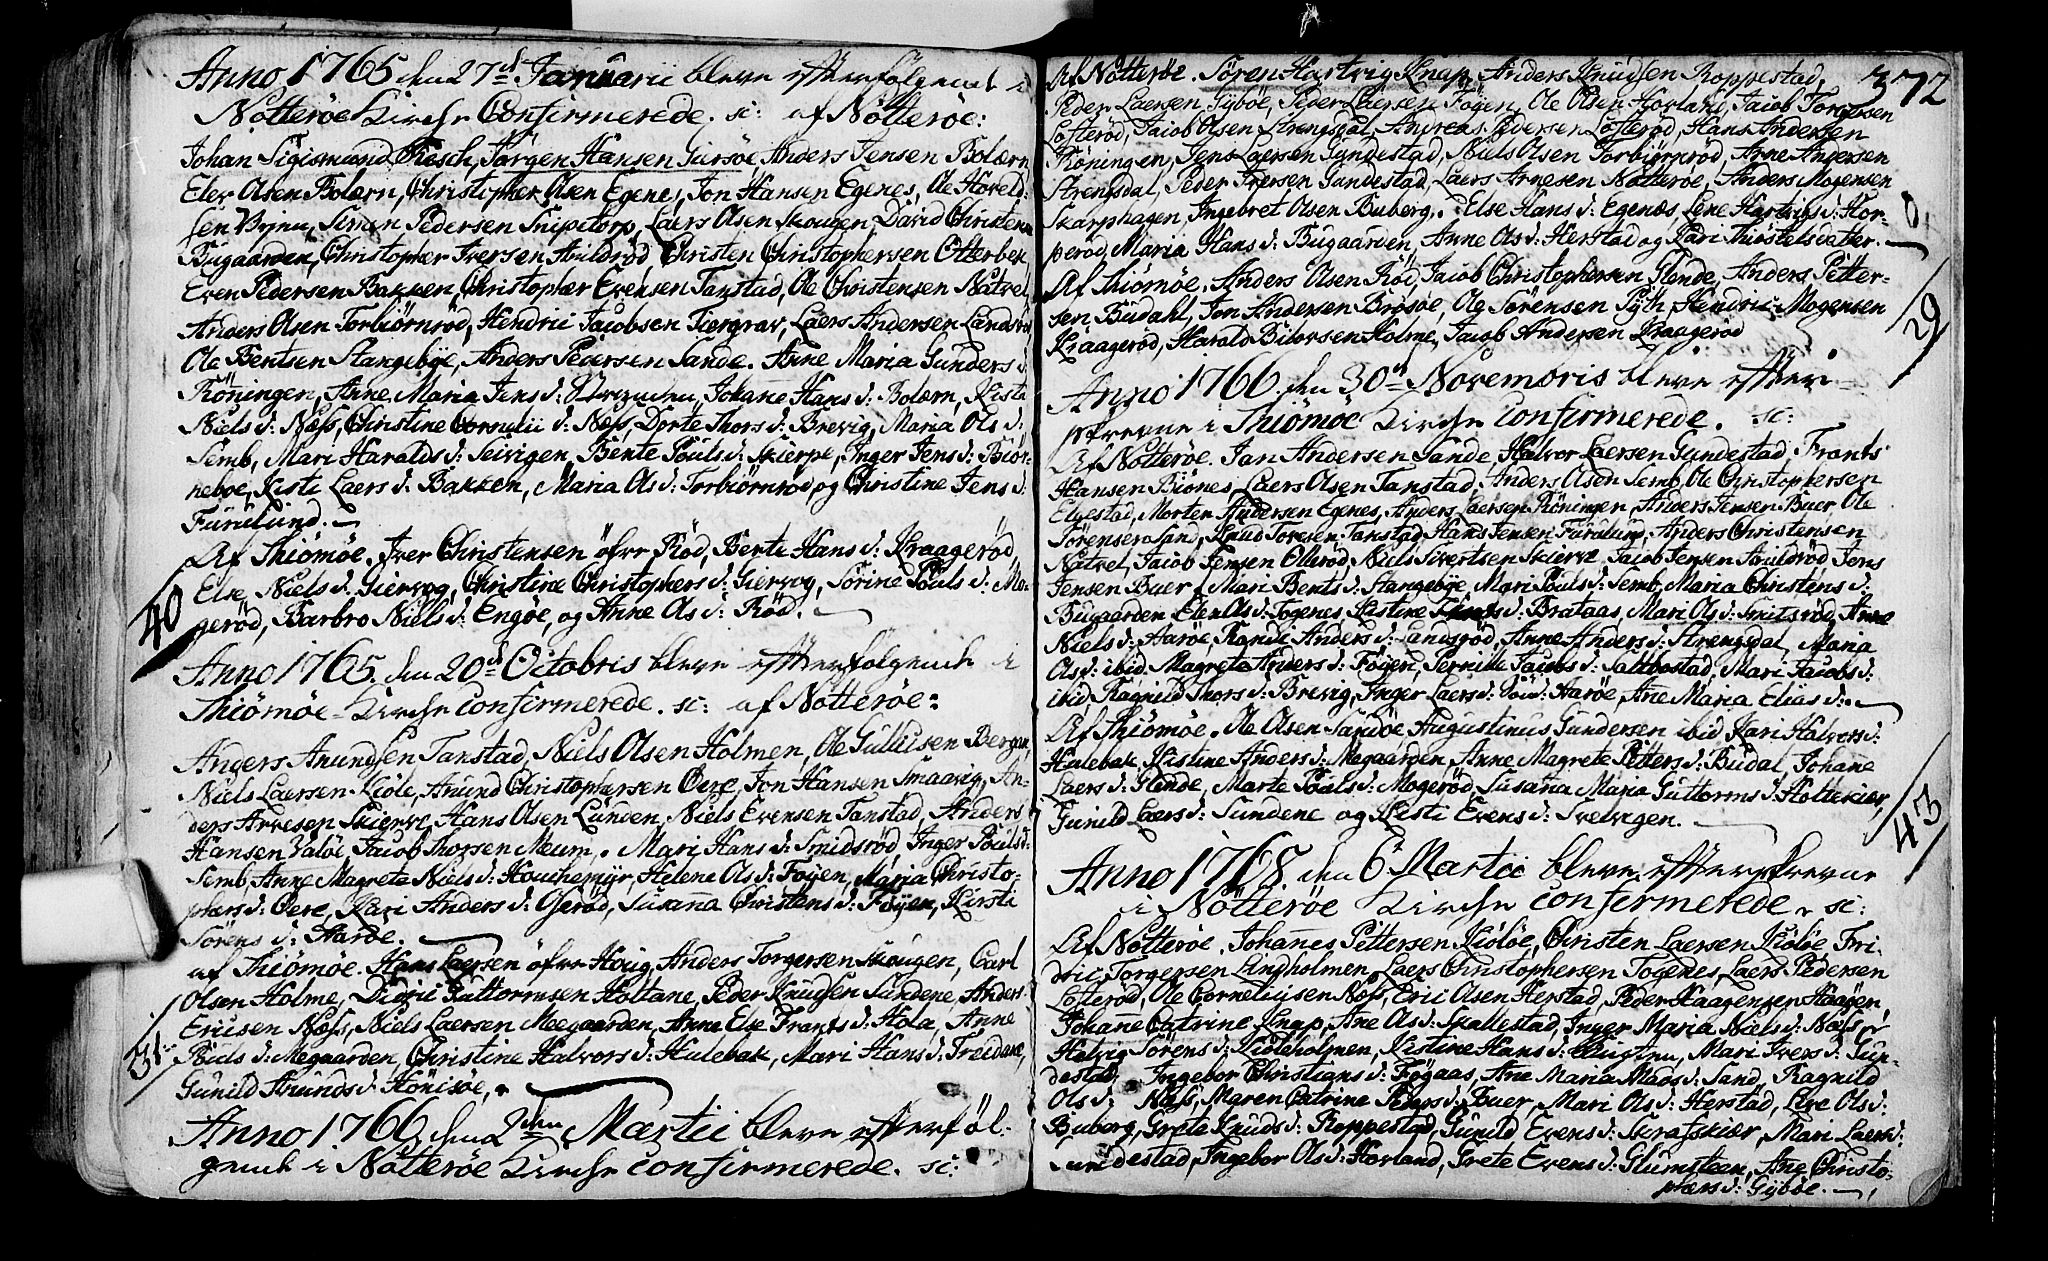 Anno 1765 den 27de Januarii bleve efterfølgende i
Nøtterøe Kirche Confirmerede. sc: af Nøtterøe:
Johan Sigismund Resch, Jørgen Hansen Gursøe, Anders Jensen Bolærn
Elev Olsen Bolærn, Christopher Olsen Egenes, Jon Hansen Egenes, Ole Hovelds
sen Brynn, Simen Pedersen Snipetorp, Laers Olsen Skougen, David Christensen
Bugaarden, Christopher Iversen Hvildrød, Christen Christophersen Otterbek,
Even Pedersen Bakken, Christopher Evensen Tanstad, Ole Christensen Natvel,
Anders Olsen Torbiørnrød, Hendric Jacobsen Tiergrav, Laers Andersen Landsrød
Ole Bentsen Stangebye, Anders Pedersen Sande. Anne Maria Gunders d:
Røningen, Anne Maria Jens d: Johane Hans d: Bolærn, Kista
Niels d: Næss, Christine Cornelii d: Næss, Dorte Thors d: Brevig, Maria Ols d:
Semb, Mari Haralds d: Seivigen, Bente Pouls d: Skierpe, Inger Jens d: Biør-
neboe, Kisti Laers d: Bakken, Maria Ols d: Torbiørnrød og Christine Jens d:
Furulund.
Af Thiømøe. Iver Christensen øfre Rød, Berte Hans d: Kraagerød,
Else Niels d: Giervog, Christine Christophers d: Giervog, Sørine Pouls d: Mo-
gerød, Barbro Niels d: Engøe, og Anne Ols d: Rød.
40
Anno 1765 den 20de Octobris bleve efterfølgende i
Thiømøe Kirche confirmerede. sc: af Nøtterøe:
Anders Anundsen Tanstad, Niels Olsen Holmen, Ole Gulliksen Bergan,
Niels Laersen Kiøle, Anund Christophersen Oere, Jon Hansen Smaavig, An-
ders Arvesen Skierve, Hans Olsen Lunden, Niels Evensen Tanstad, Anders
Hansen Valøe, Jacob Thorsen Meum. Mari Hans d: Smidsrød, Inger Pouls d:
Semb, Anne Magreta Niels d: Houchemyr, Helene Ols d: Føyen, Maria Christo-
phers d: Oere, Kari Anders d: Gierød, Susanna Christens d: Føyen, Kirsti
Sørens d: Harøe.
af Thiømøe. Hans Laersen øfre Houg, Anders Torgersen Skougen, Carl
Olsen Holme, Didric Guttormsen Holtane, Peder Knudsen Sundene, Anders
Ericsen Næss, Niels Laersen Meegaarden, Anne Else Frants d: Hola, Anne
Pouls d: Megaarden, Christine Halvors d: Hulebak, Mari Hans d: Treidene,
Gunild Anunds d: Hønisøe.
31
Anno 1766 den 2den Martii bleve efterføl-
gende i Nøtterøe Kirche confirmerede. sc:
372
Af Nøtterøe. Søren Hartvig Knap, Anders Knudsen Roppestad,
Peder Laersen Gybøe, Peder Laersen Føyen, Ole Olsen Hovland, Jacob Torgersen
Løfterød, Jacob Olsen Strengsdal, Andreas Pedersen Løfterød, Hans Andersen
Røningen, Jens Laersen Gundestad, Niels Olsen Torbiørnrød, Arne Andersen
Strengsdal, Peder Iversen Gundestad, Laers Arnesen Nøtterøe, Anders Mogensen
Skarphagen, Ingebret Olsen Buberg. Else Hans d: Egenæs, Lene Hartvigs d: Hor-
perød, Maria Hans d: Bugaarden, Anne Ols d: Herstad og Kari Thiøstelsdatter.
Af Thiømøe. Anders Olsen Rød, Jacob Christophersen Glende, Anders Petter-
sen Budahl, Jon Andersen Brøsøe, Ole Sørensen Hendric Mogensen
Kraagerød, Harald Bilorsen Holme, Jacob Andersen Kraagerød
29
Anno 1766 den 30te Novembris bleve efter-
skrevne i Thiømøe Kirche confirmerede. sc:
Af Nøtterøe. Jan Andersen Sande, Halvor Laersen Gundestad, Frants
Hansen Biønes, Laers Olsen Tanstad, Anders Olsen Semb, Ole Christophersen
Elgestad, Morten Andersen Egenes, Anders Laersen Røningen, Anders Jensen Buer, Ole
Sørensen Sand, Knud Toresen Tanstad, Hans Jensen Furulund, Anders Christensen
Natvel, Jacob Jensen Ollerød, Niels Sivertsen Skierve, Jacob Jensen Jens
Jensen Buer. Mari Bents d: Stangebye, Mari Pouls d: Semb, Maria Christens d:
Bugaarden, Elen Ols d: Togenes, Kistine d: Brataas, Mari Ols d: Smitsrød, Anne
Niels d: Harøe, Randi Anders d: Landsrød, Anne Anders d: Strengsdal, Maria
Ols d: ibid, Magreta Anders d: Føyen, Pernille Jacobs d: Saltbostad, Mari Jacobs d:
ibid, Ragnild Thors d: Brevig, Inger Laers d: Harøe, Ane Maria Elias d:
Af Thiømøe. Ole Olsen Sandøe, Augustinus Gundersen ibid, Kari Halvors d:
Hulebak, Kistine Anders d: Megaarden, Anne Magrete Petters d: Budal, Johane
Laers d: Glende, Marte Pouls d: Mogerød, Susana Maria Guttorms d: Holtekiær,
Gunild Laers d: Sundene og Kisti Evens d: Svelvigen.
43
Anno 1768 den 6te Martii bleve efterskrevne
i Nøtterøe Kirche confirmerede. sc:
Af Nøtterøe. Johannes Pettersen Kiøløe, Christen Laersen Kiøløe, Fri-
dric Torgersen Lindholmen, Laers Christophersen Togenes, Laers Pedersen
Løfterød, Ole Corneliusen Næss, Eric Olsen Herstad, Peder Haagensen Haagen,
Johanne Catrine Knap, Ane Ols d: Skallestad, Inger Maria Niels d: Næss,
Helvig Sørens d: Kioleholmen, Kistine Hans d: Mari Ivers d: Gun-
destad, Ingebor Christians d: Føgaas, Ane Maria Mads d: Sand, Ragnild
Ols d: Næss, Maren Catrine Jens d: Buer, Mari Ols d: Herstad, Live Ols d:
Buborg, Grete Knuds d: Roppestad, Gunild Evens d: Skrafskiær, Mari Laers d:
Gundestad, Ingebor Ols d: Hovland, Grete Evens d: Glumsteen, Ane Christo-
phers d: Gybøe.